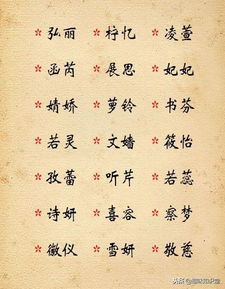 *弘丽 *柠忆 *凌萱
*函芮 *展思 *妃妃
*婧娇 *萝铃 *书芬
*若灵 *文嫱 *筱怡
*孜蕾 *听芹 *若蕊
*诗妍 *喜容 *察梦
*徽仪 *雪妍 *敬慈